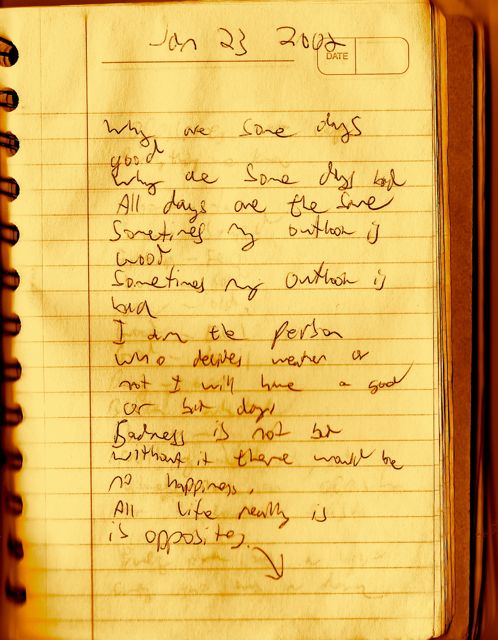 Jan 23 2002
DATE
Why are some days
good
Why are some days bad
All days are the same
Sometimes my outlook is
wood
Sometimes my outlook is
bad
I am the person
who decides weather or
not I will have a good
or bad days
Badness is not bad
without it there would be
no happiness.
All life really is
is opposites.